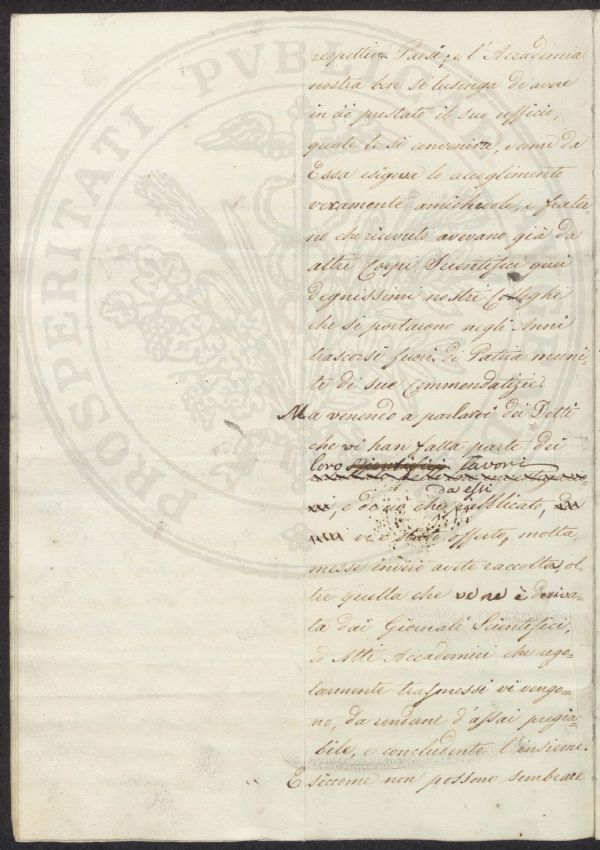 PROSPERITATI PVBLICAE
respettivi Paesi; e l'Accademia
nostra ben si lusinga di avere
in ciò prestato il suo ufficio,
quale le si conveniva, come da
Essa esigeva lo accoglimento
veramente amichevole, e frater-
no che ricevuto avevano già da
altri Corpi Scientifici quei
degnissimi nostri Colleghi
che si portarono negli Anni
trascorsi fuori di Patria muni-
ti di sue Commendatizie.
Ma venendo a parlarvi dei Dotti
che vi han fatta parte dei
loro scientifici lavori
da essi
e che pubblicato,
vi è stato offerto, molta
messe invero avete raccolta, ol-
tre quella che ve ne è deriva-
ta dai Giornali Scientifici,
ed Atti Accademici che rego-
larmente trasmessi vi vengo-
no, da rendane d'assai pregia-
bile, e concludente l'insieme.
E siccome non possono sembrare